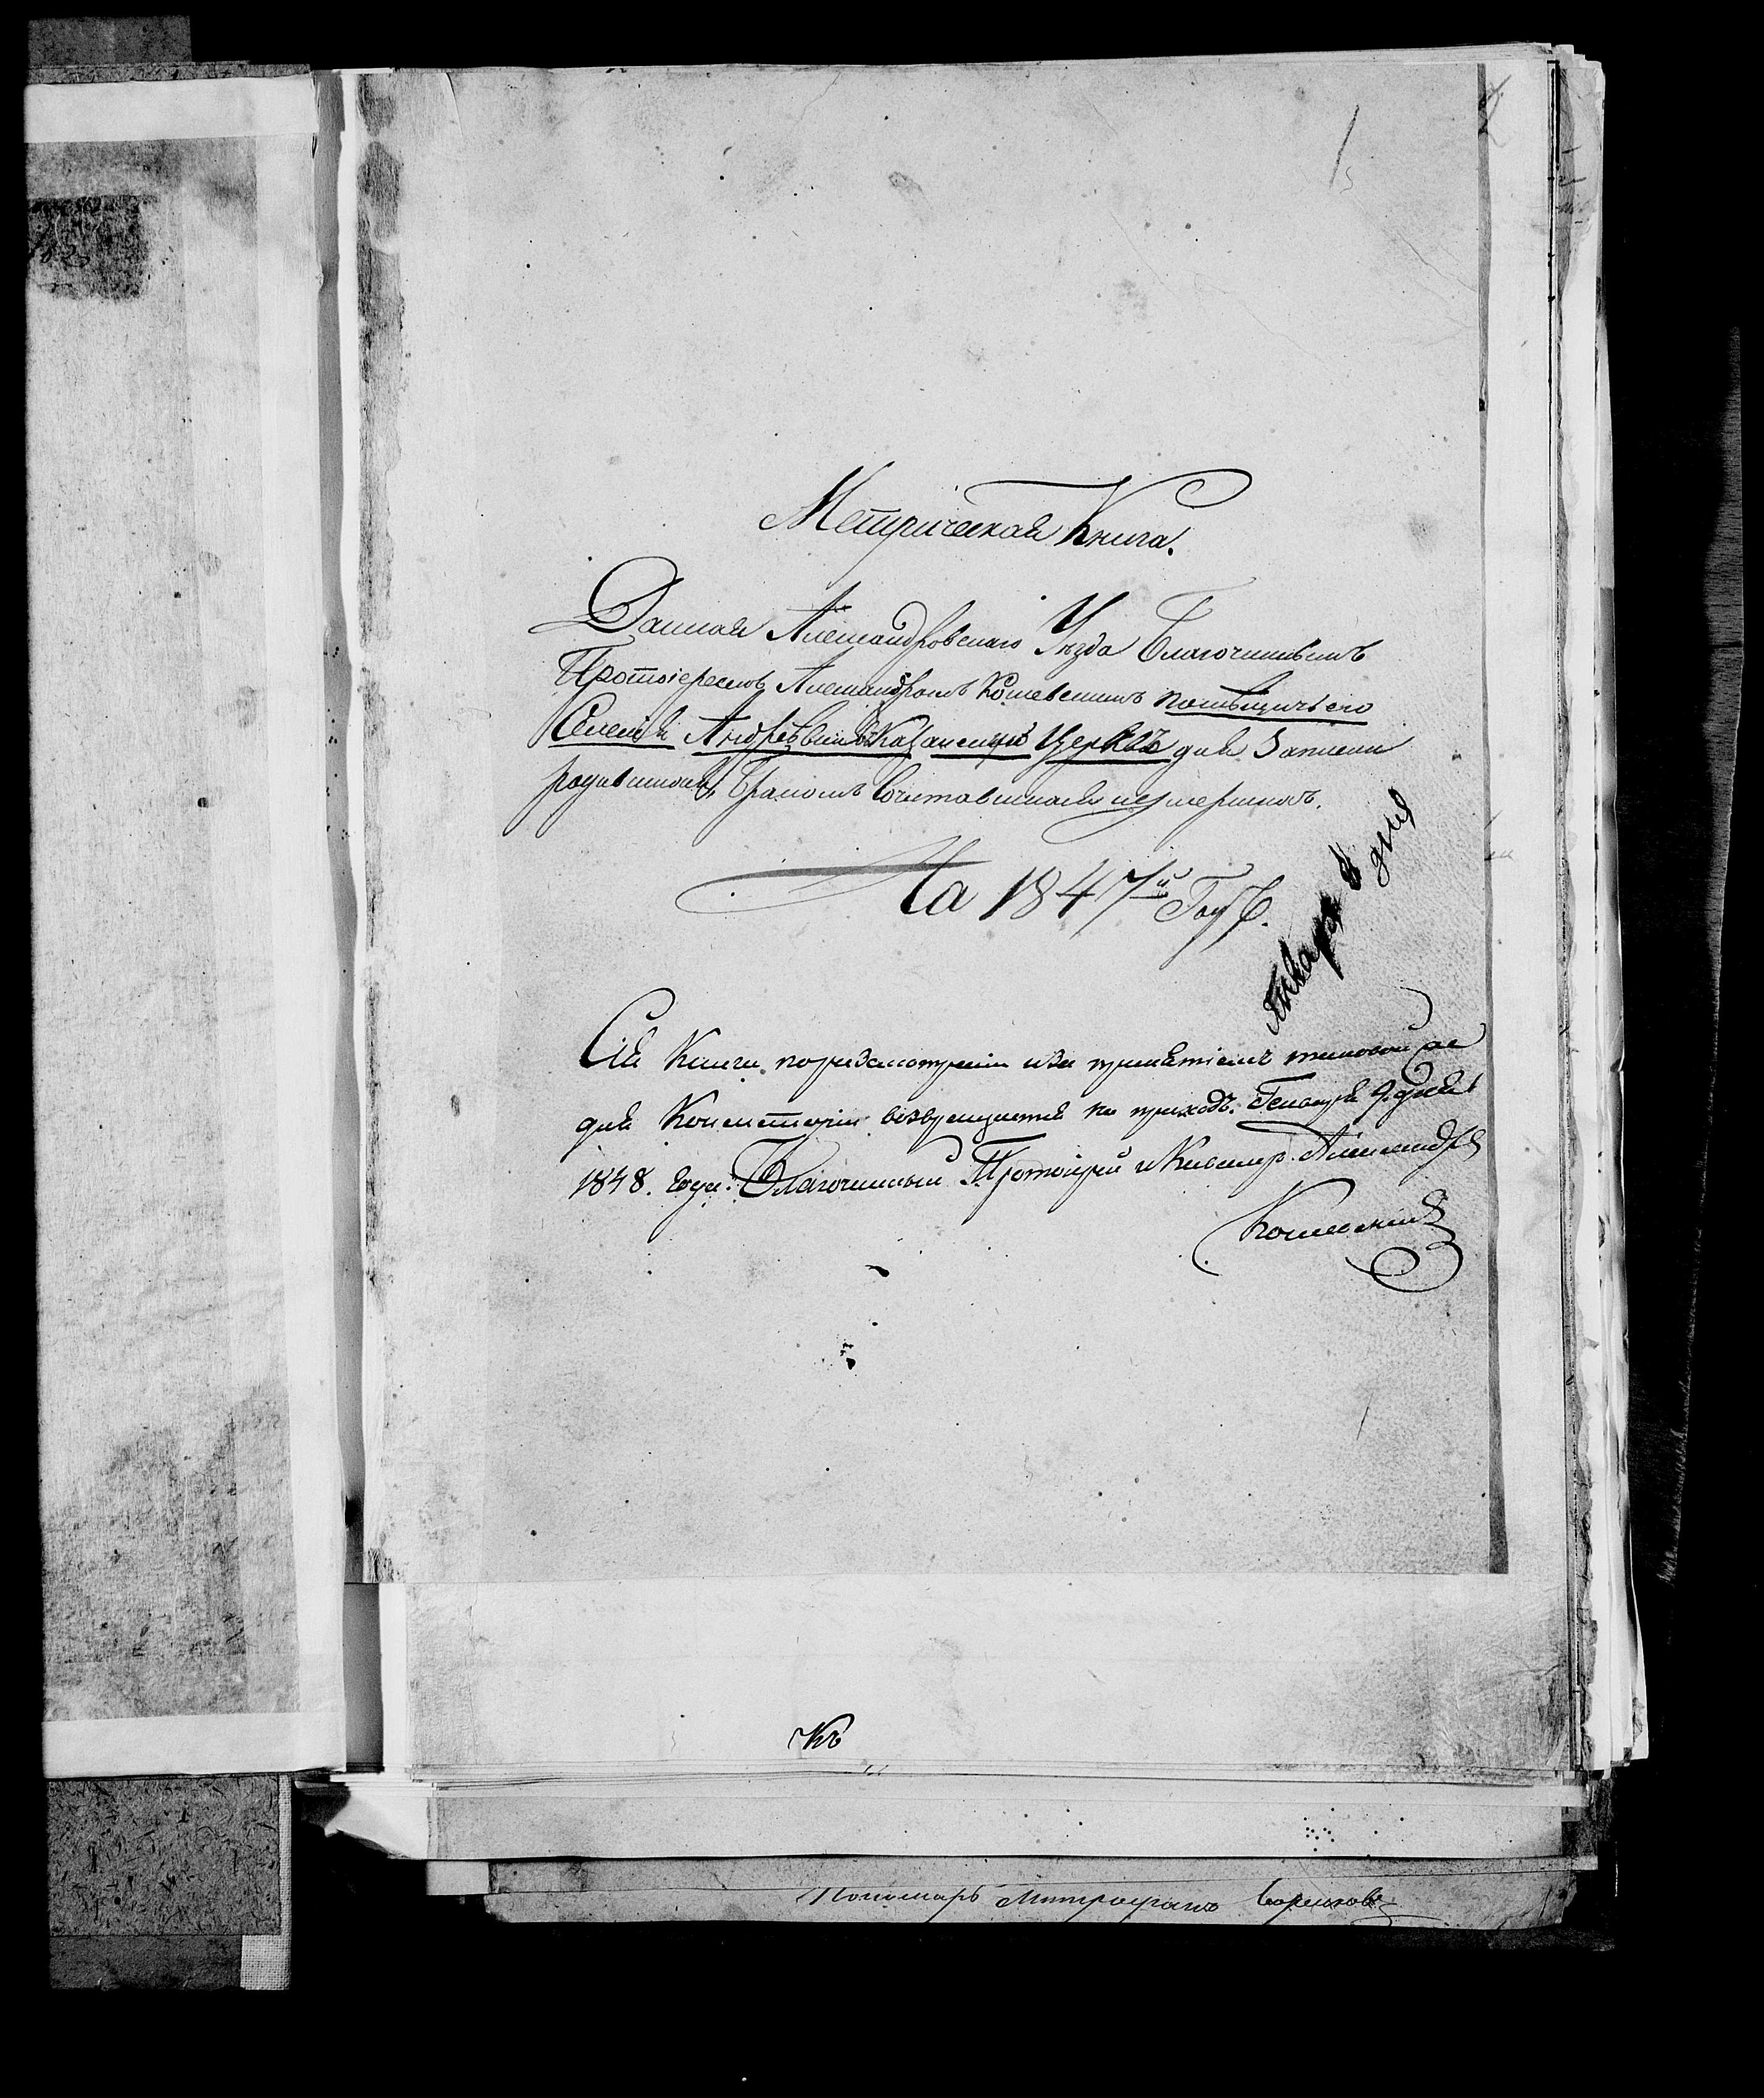 1
Метрическая Книга.
Данная Александровскаго Уезда Благочиннымъ
Протоіереемъ Александромъ Кошевскимъ помѣщичьяго
Селенія Андрѣевки Казанской Церквѣ для Записки
родившихся, бракомъ сочетавшихся и умершихъ.
На 1847й Годъ.
Января 8 дня
Сія Книга по разсмотреніи и за принятіемъ таковой же
для Консисторіи возвращается на приходъ. Генваря 9. дня
1848. года. Благочинный Протоіерей и Кавалеръ Александръ
Кошевскій
Къ
Пономарь Митрофанъ